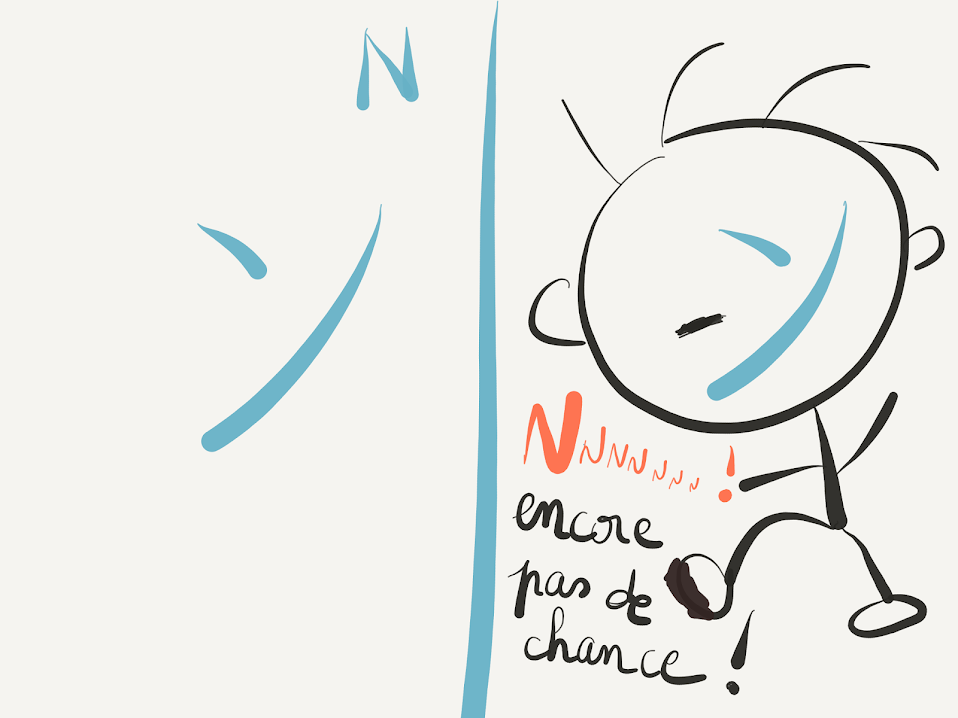 N
ン
ン
NNNNNNN!
encore
pas de
chance!